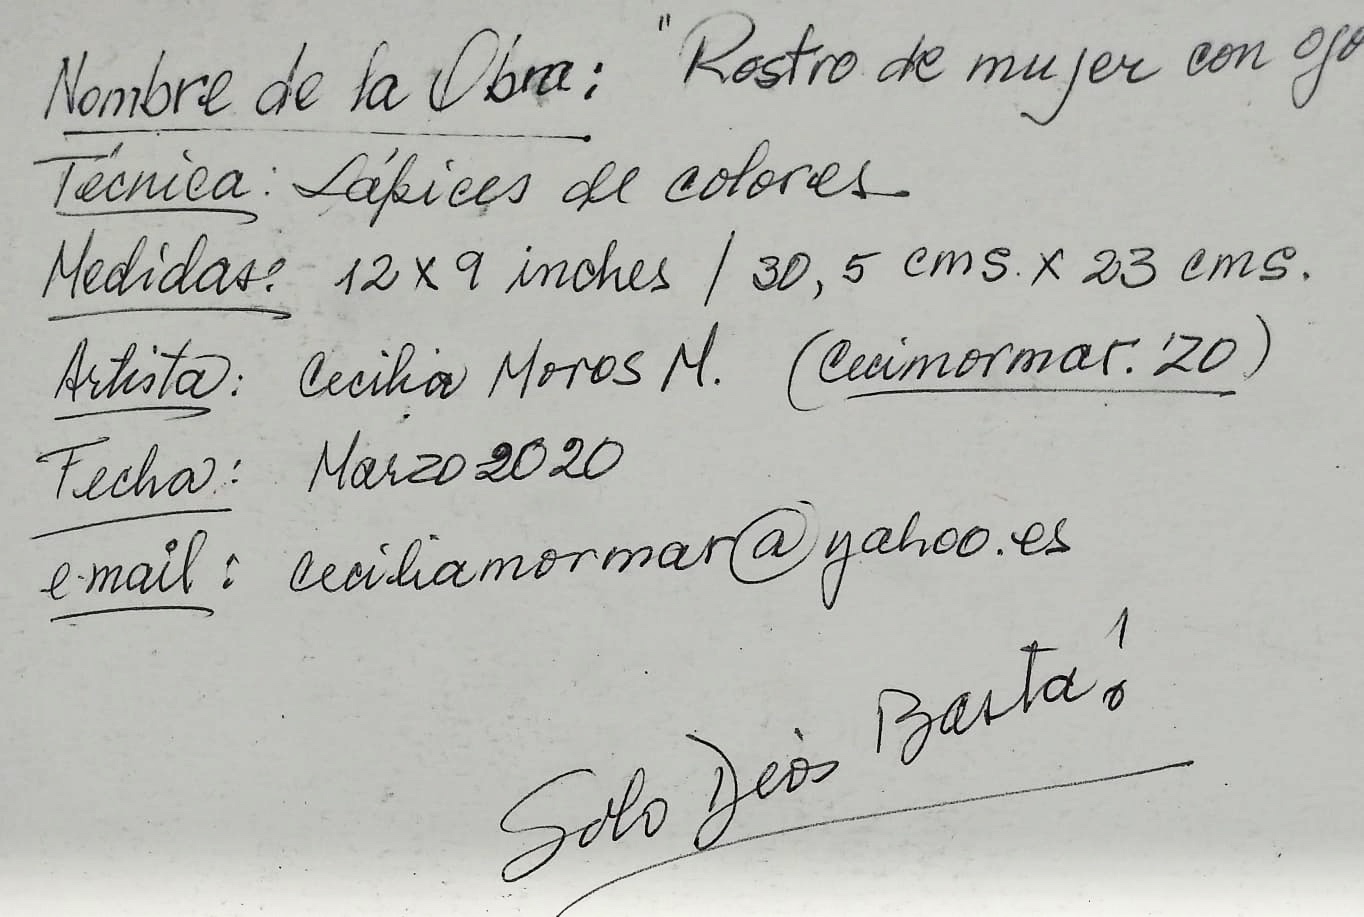 Nombre de la Obra: "Rostro de mujer con ojo
Técnica: Lápices de colores
Medidas: 12 x 9 inches / 30,5 cms. x 23 cms.
Artista: Cecilia Moros M. (Cecimormar.'20)
Fecha: Marzo 2020
e-mail: ceciliamormar@yahoo.es
Solo Dios Basta!